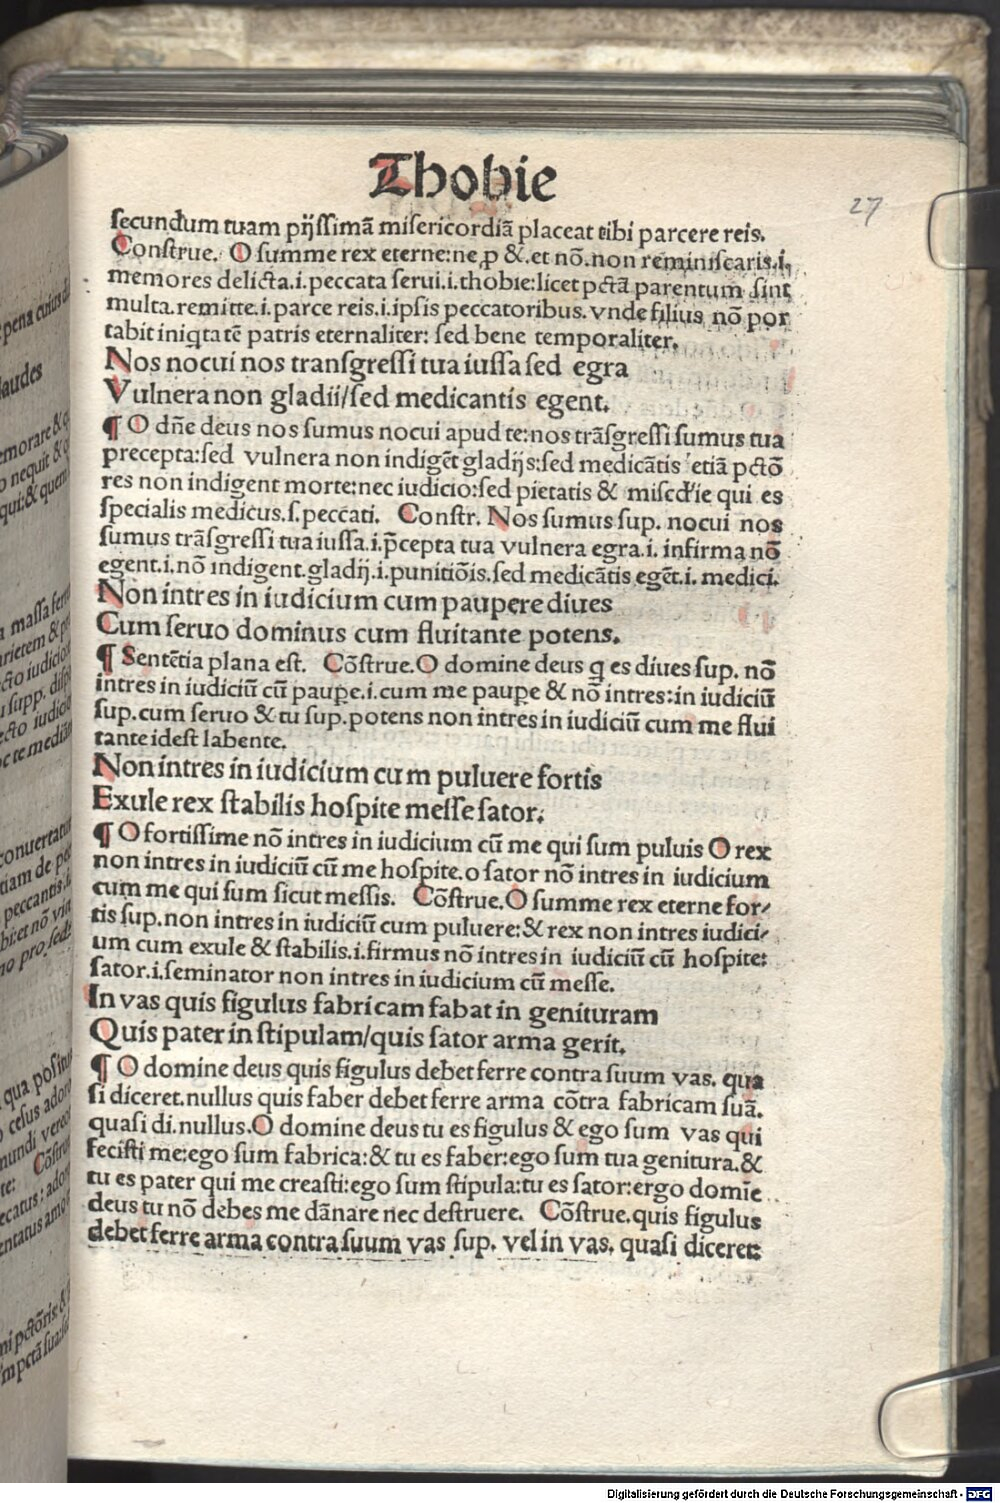 Thobie
27
secundum tuam pijssimā misericordiā placeat tibi parcere reis.
Construe. O summe rex eterne:ne ꝑ &.et nō.non reminiscaris.i.
memores delicta.i.peccata serui.i.thobie:licet pctā parentum sint
multa.remitte.i.parce reis.i.ipsis peccatoribus.vnde filius nō por
tabit iniqtatē patris eternaliter: sed bene temporaliter.
Nos nocui nos transgressi tua iussa sed egra
Vulnera non gladii/sed medicantis egent.
¶ O dñe deus nos sumus nocui apud te:nos trāsgressi sumus tua
precepta:sed vulnera non indigēt gladijs:sed medicātis etiā pctō
res non indigent morte:nec iudicio:sed pietatis & miscdie qui es
specialis medicus.s.peccati. Constr. Nos sumus sup. nocui nos
sumus trāsgressi tua iussa.i.p̄cepta tua vulnera egra.i. infirma nō
egent.i.nō indigent.gladij.i.punitiōis.sed medicātis egēt.i. medici.
Non intres in iudicium cum paupere diues
Cum seruo dominus cum fluitante potens.
¶ Sentētia plana est. Cōstrue.O domine deus q es diues sup. nō
intres in iudiciū cū paupe.i.cum me paupe & nō intres:in iudiciū
sup.cum seruo & tu sup.potens non intres in iudiciū cum me flui
tante idest labente.
Non intres in iudicium cum puluere fortis
Exule rex stabilis hospite messe sator.
¶ O fortissime nō intres in iudicium cū me qui sum puluis O rex
non intres in iudiciū cū me hospite.o sator nō intres in iudicium
cum me qui sum sicut messis. Cōstrue.O summe rex eterne for⸗
tis sup.non intres in iudiciū cum puluere:& rex non intres iudici⸗
um cum exule & stabilis.i.firmus nō intres in iudiciū cū hospite:
sator.i.seminator non intres in iudicium cū messe.
In vas quis figulus fabricam fabat in genituram
Quis pater in stipulam/quis sator arma gerit.
¶ O domine deus quis figulus debet ferre contra suum vas. qua
si diceret.nullus quis faber debet ferre arma cōtra fabricam suā.
quasi di.nullus.O domine deus tu es figulus & ego sum vas qui
fecisti me:ego sum fabrica:& tu es faber:ego sum tua genitura.&
tu es pater qui me creasti:ego sum stipula:tu es sator:ergo domīe
deus tu nō debes me dānare nec destruere. Cōstrue.quis figulus
debet ferre arma contra suum vas sup. vel in vas. quasi diceret:
Digitalisierung gefördert durch die Deutsche Forschungsgemeinschaft - DFG